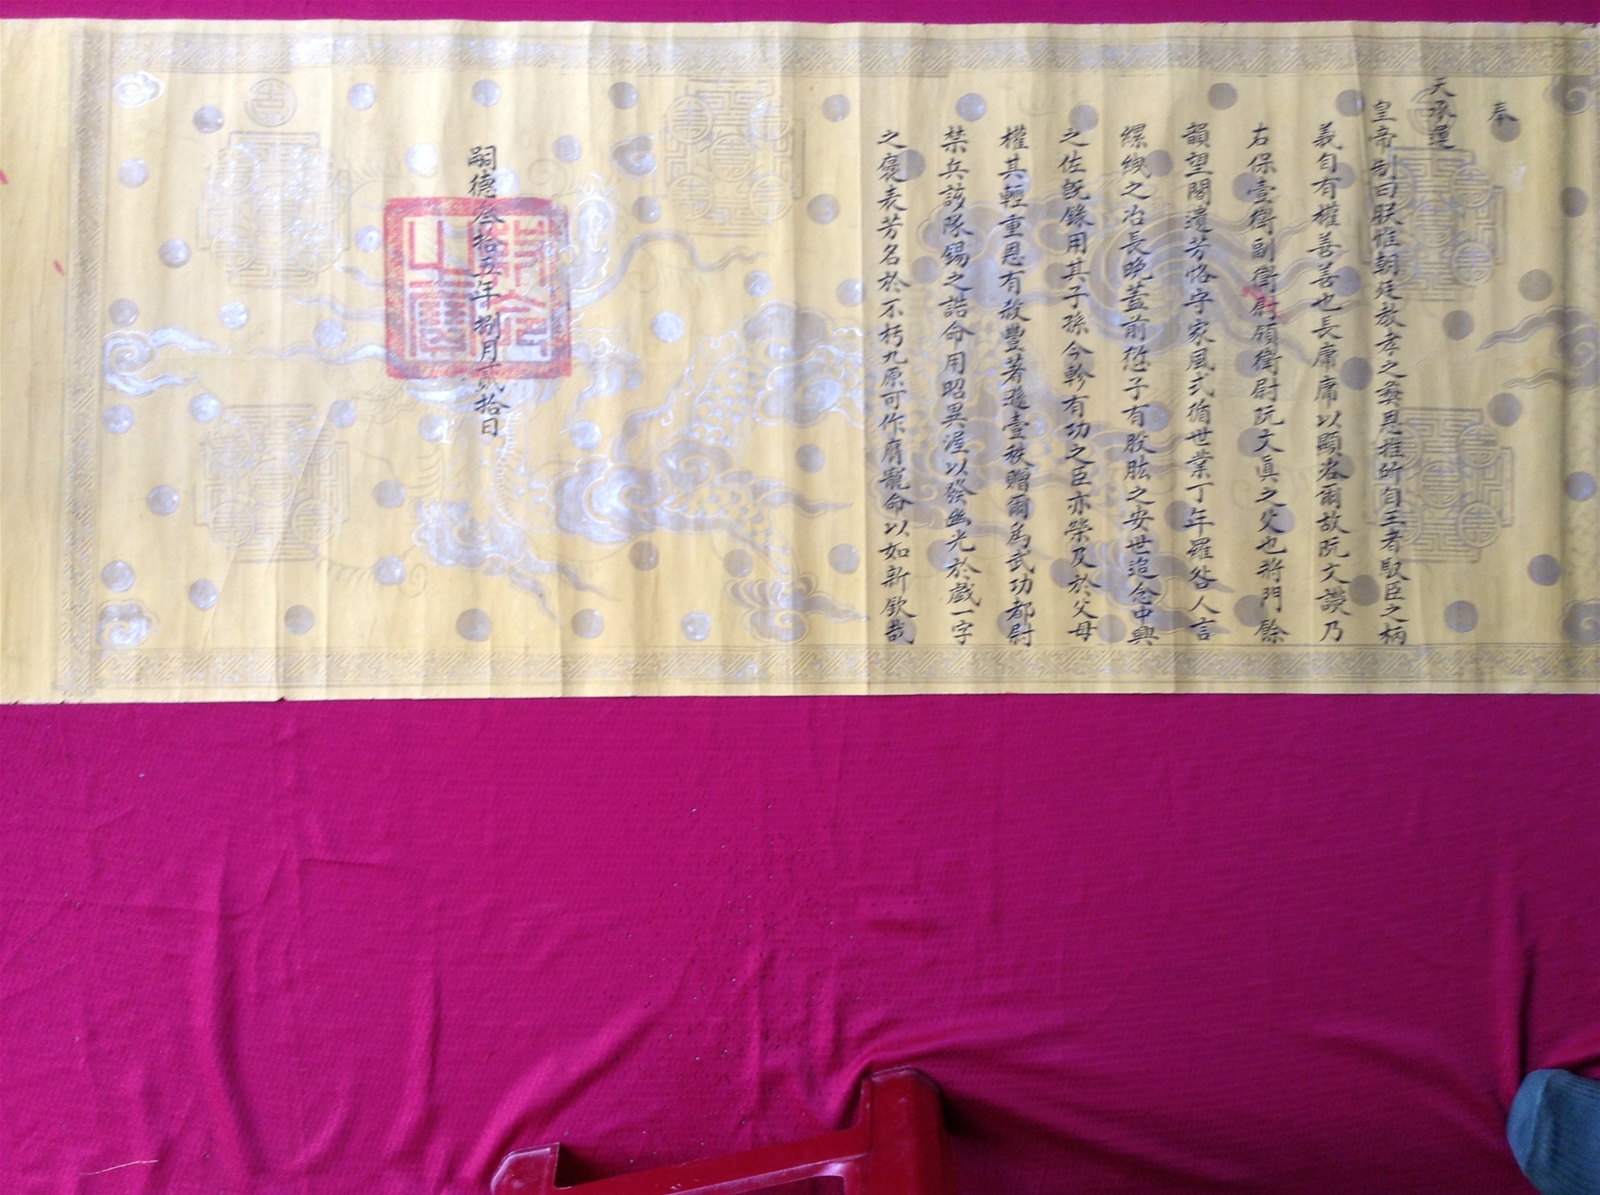 奉
天承運
皇帝制曰朕惟朝廷教孝之恩推所自王者馭臣之柄
義自有權善善也長庸庸以顯洛爾故阮文讚乃
右保壹衛副衛尉領衛尉阮文眞之父也將門餘
韻望閥遺芳恪守家風式循世業丁年羅咎人言
縲絏之冶長晚蓋前愆子有股肱之安世追念中興
之佐旣錄用其子孫今軫有功之臣亦榮及於父母
權其輕重恩有殺豐著遜壹秩贈爾爲武功都尉
禁兵該隊錫之誥命用昭異渥以發幽光於戲一字
之褒表芳名於不朽九原可作膺寵命以如新欽哉
嗣德叁拾五年捌月貳拾日